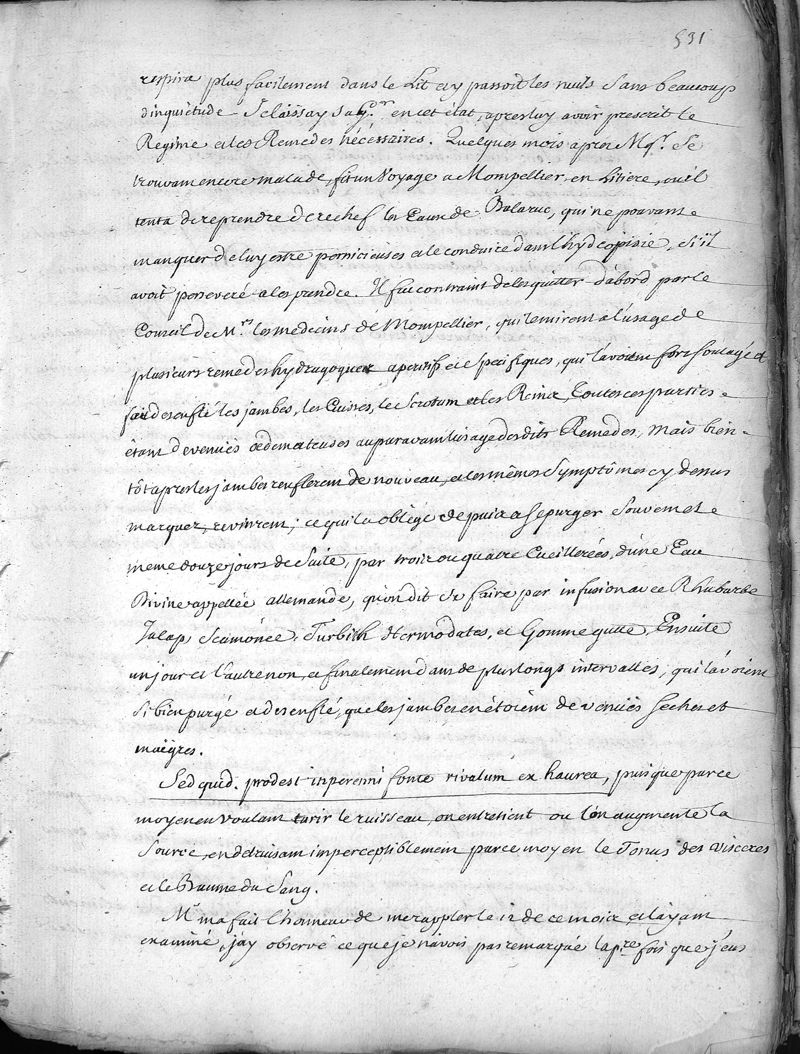 531
respire plus facilement dans le Lit et y passoit les nuits Sans beaucoup
d'inquiétude. Je laissay sa Gr. en cet état, apres luy avoir prescrit le
Regime et les Remedes nécessaires. Quelques mois apres Mgr. se
trouvam encore malade, fit un Voyage a Mompellier, en Litiere, ou il
tenta de reprendre de rechef les Eaux de Balaruc, qui ne pouvant
manquer de luy estre pernicieuses et le conduire dans l'hydropisie, s'il
avoit perseveré a les prendre. Il fut contraint de les quitter d'abord par le
Conseil de Mrs. les medecins de Mompellier, qui le mirent a l'usage de
plusieurs remedes hydragogues aperitifs et Spécifiques, qui l'avoient fort soulagé et
fait desenflé les jambes, les Cuisses, le Scrotum et les Reins, toutes ces parties
étant devenües oedemateuses auparavant l'usage desdits Remedes, mais bien-
tôt apres les jambes renflerent de nouveau, et les mêmes Symptômes cy dessus
marquez, revinrent; ce qui l'a obligé depuis a se purger Souvent et
meme douze jours de Suite, par trois ou quatre Cueillerées, d'une Eau
Divine appellée allemande, qu'on dit se faire par infusion avec Rhubarbe
Jalap, Scamonée, Turbith, Hermodates, et Gomme gutte, Ensuite
un jour et l'autre non, et finalement dans de plus longs intervalles, qui l'avoient
si bien purgé et desenflé, que les jambes en étoient devenües seches et
maigres.
Sed quid. prodest in perenni fonte rivalum ex haurea, puisque par ce
moyen en voulant tarir le ruisseau, on entretient ou l'on augmente la
Source, en detruisam imperceptiblement par ce moyen le Tonus des Visceres
et le Baume du Sang.
Mr. m'a fait l'honneur de me rappler le 12 de ce mois, et l'ayam
examiné, j'ay observé ce que je n'avois pas remarqué la pre. fois que j'eus